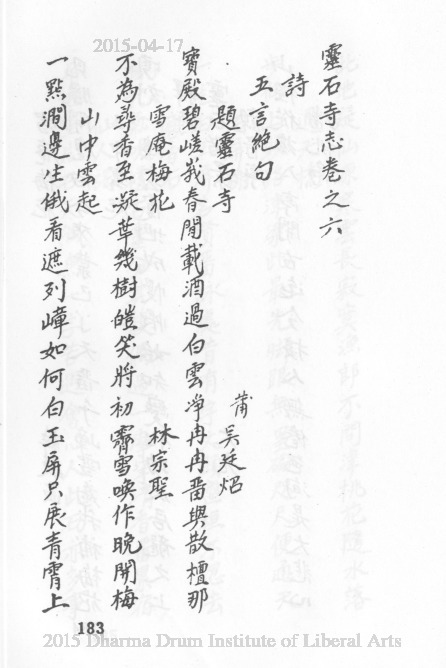 2015-04-17
靈石寺志卷之六
詩
五言絕句
題靈石寺 莆 吳廷炤
寶殿碧嵯峩春閒載酒過白雲淨冉冉啚與散檀那
雪庵梅花 林宗聖
不為尋香至凝華幾樹皚笑將初霽雪喚作晚開梅
山中雲起
一點澗邊生俄看遮列嶂如何白玉屏只展青霄上
183
2015 Dharma Drum Institute of Liberal Arts